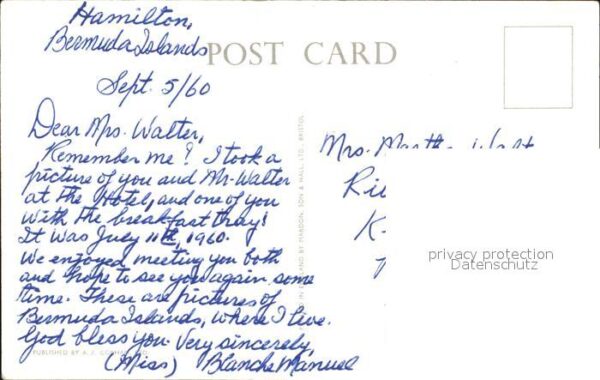 Hamilton,
Bermuda Islands
POST CARD
Sept. 5/60
Dear Mrs. Walter,
Remember me? I took a
picture of you and Mr. Walter
at the Hotel, and one of you
with the breakfast tray!
It was July 11th, 1960.
We enjoyed meeting you both
and hope to see you again some
time. These are pictures of
Bermuda Islands, where I live.
God bless you. Very sincerely,
(Miss) Blanche Manuel
PUBLISHED BY A. J.
LTD., BRISTOL
Mrs.
privacy protection
Datenschutz